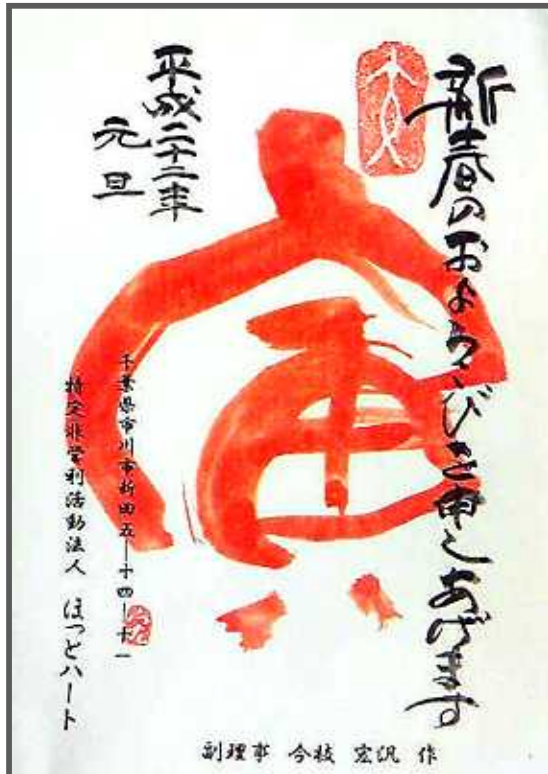 新春のおよろこびを申しあげます
寅
平成二十二年
元旦
千葉県市川市新田五―十四―十一
特定非営利活動法人 ほっとハート
副理事 今枝 宏汎 作